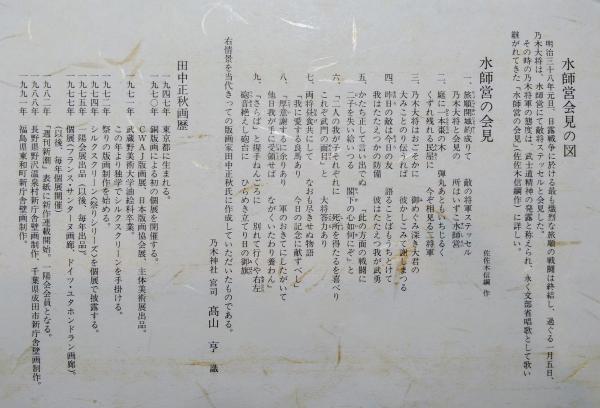 水師営会見の図
明治三十八年元旦、日露戦争に於ける最も熾烈な旅順の戦闘は終結し、過ぐる一月五日、
乃木大将は、水師営にて敵将ステッセルと会見した。
その時の乃木将軍の態度は、武士道精神の発露と称えられ、永く文部省唱歌として歌い
継がれてきた。「水師営の会見」(佐佐木信綱作)に詳しい。
水師営の会見
佐佐木信綱 作
一、旅順開城約成りて 敵の将軍ステッセル
乃木大将と会見の 所はいずこ水師営
二、庭に一本棗の木 弾丸あともいちじるく
くずれ残れる民屋に 今ぞ相見る二将軍
三、乃木大将はおごそかに 御めぐみ深き大君の
大みことのり伝うれば 彼かしこみて謝しまつる
四、昨日の敵は今日の友 語ることばもうちとけて
我はたたえつかの防備 彼はたたえつ我が武勇
五、かたち正して言い出でぬ 此の方面の戦闘に
二子を失い給いつる 閣下の心如何にぞと
六、「二人の我が子それぞれに 死所を得たるを喜べり
これぞ武門の面目」と 大将答力あり
七、両将昼食共にして なおも尽きせぬ物語
「我に愛する良馬あり 今日の記念に献ずべし」
八、「厚意謝するに余りあり 軍のおきてにしたがいて
他日我が手に受領せば ながくいたわり養わん」
九、「さらば」と握手ねんごろに 別れて行くや右左
砲音絶えし砲台に ひらめき立てり日の御旗
右情景を当代きっての版画家田中正秋氏に作成していただいたものである。
乃木神社 宮司 高山 亨 識
田中正秋画歴
一九四七年 東京都に生まれる。
一九七〇年 銅版画による初の個展を開催する。
CWAJ版画展、日本版画協会展、主体美術展出品。
一九七一年 武蔵野美術大学油絵科卒業。
この年より独学でシルクスクリーンを手掛ける。
一九七二年 祭りの版画制作を始める。
一九七四年 シルクスクリーン〈祭りシリーズ〉を個展で披露する。
一九七五年 一陽会展出品(以後、毎年出品)。
一九七七年 個展(フランス・ラーヌ画廊、ドイツ・ユタホンドラン画廊)。
(以後、毎年個展開催)
一九八二年 「週刊新潮」表紙に新作連載開始。一陽会会員となる。
一九八八年 長野県野沢温泉村新庁舎壁画制作。千葉県成田市新庁舎壁画制作。
一九九一年 福島県東和町新庁舎壁画制作。